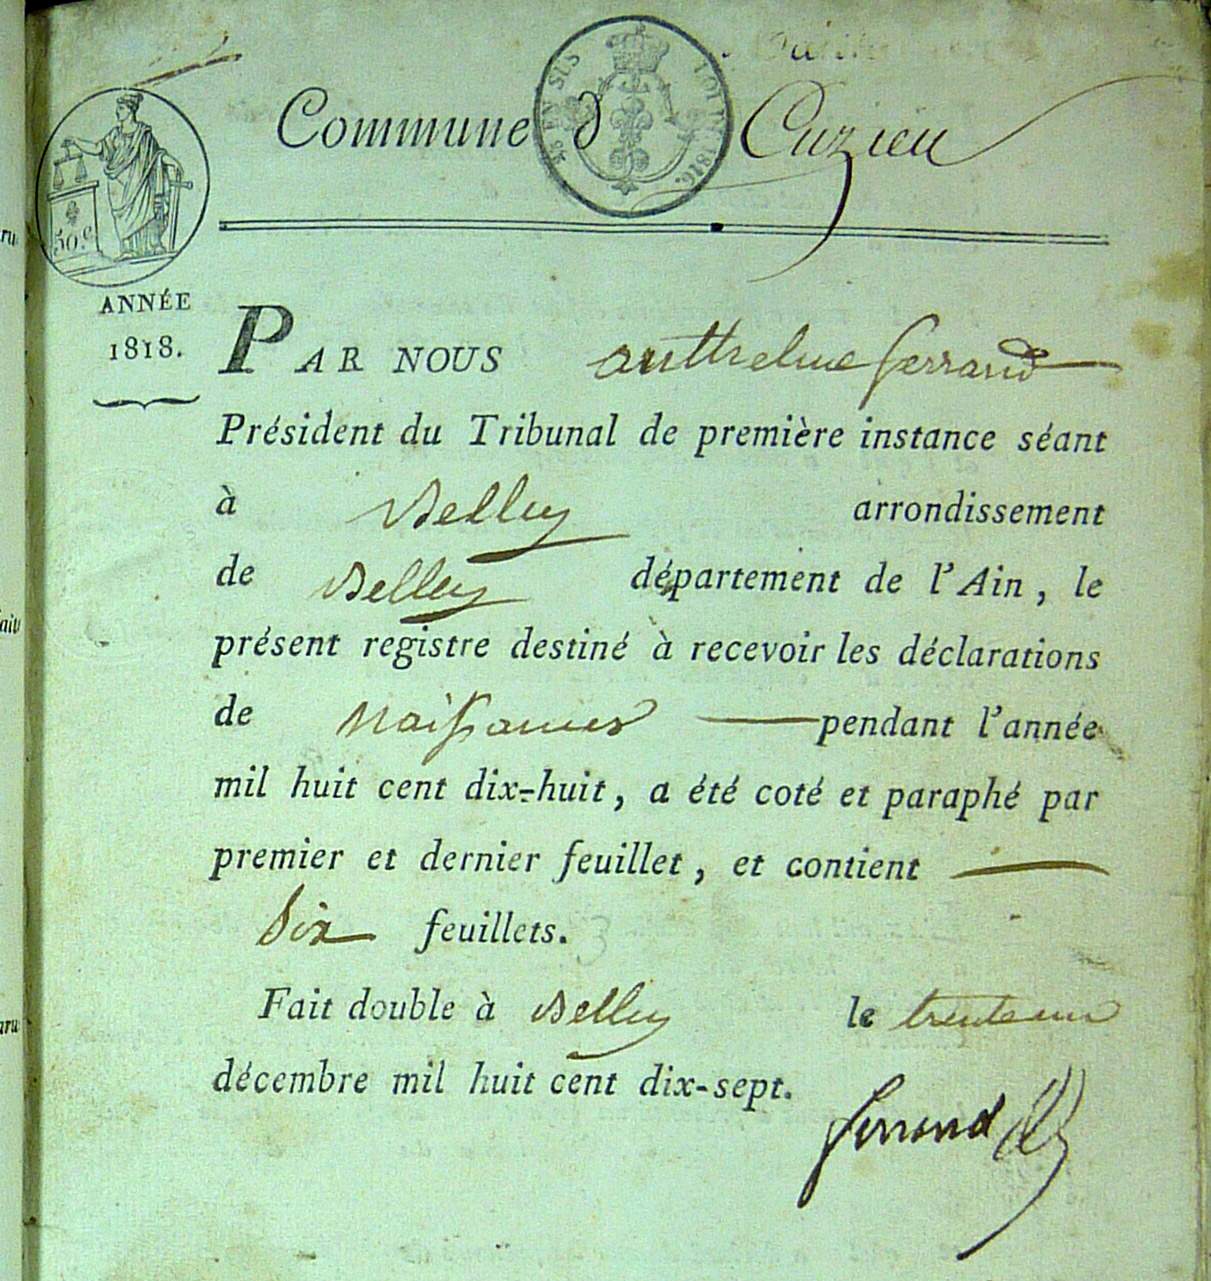 Commune d Cuzieu
¼ EN SUS LOI DE 1816.
50.c
ANNÉE
1818.
PAR NOUS anthelme ferrand
Président du Tribunal de première instance séant
à Belley arrondissement
de Belley département de l'Ain, le
présent registre destiné à recevoir les déclarations
de naissances pendant l'année
mil huit cent dix-huit, a été coté et paraphé par
premier et dernier feuillet, et contient
Six feuillets.
Fait double à Belley le trente un
décembre mil huit cent dix-sept.
ferrand